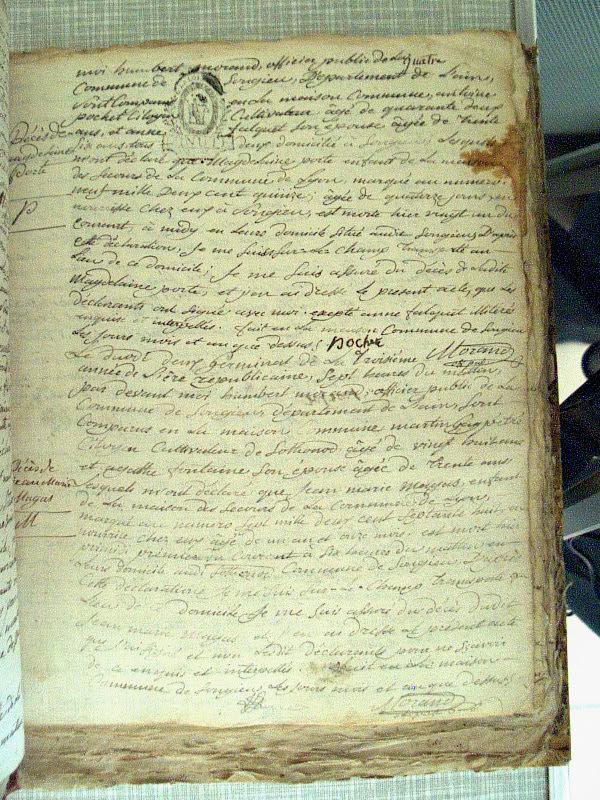 moi humbert morand officier public de la
quatre
Commune de Songieu, Département de l'ain,
sont Comparus en la maison Commune, antoine
pochet Citoyen Cultivateur âgé de quarante deux
ans, et anne falquet son épouse âgée de trente
six ans tous deux domiciliés à Songieu Lesquels
m'ont déclaré que Magdelaine porte enfant de la maison
des Secours de La Commune de Lyon, marqué au numero
neuf mille Deux cent quinze, âgée de quatorze jours en
nourrisse chez eux à Songieu, est morte hier vingt un du
courent, à midy en Leurs domicile situé audit Songieu, D'après
cette déclaration, Je me suis sur-Le Champ transporté au
Lieu de ce domicile; Je me suis assuré du décès de Ladite
Magdelaine porte, et j'en ai dressé Le présent acte, que Les
Déclarants ont Signé avec moi excepté anne falquet illiterée
enquis et interpellés. fait en La maison Commune de Songieu
Le jours mois et an que dessus; pochet
Morand
Décès de
magdelaine
Porte
P
Le duodi Deux germinal de La Troisième
année de L'Ère républicaine, Sept heures du matin,
par devant moi humbert morand, officier public de La
Commune de Songieu, département de L'ain, sont
Comparus en La maison commune martin
Citoyen Cultivateur de Lothonod âgé de vingt huit ans
et agathe fontaine Son epouse âgée de trente ans
Lesquels m'ont déclaré que Jean marie Magas, enfant
de La maison des Secours de La Commune de Lyon,
marqué au numero Sept mille deux cent Septante huit en
nourrice chez eux âgé de un an et onze mois, est mort hier
primidi premier du Courent à Six heures du matin en
Leurs domicile audit Lothonod Commune de Songieu D'après
Cette déclaration je me suis Sur-Le-Champ transporté au
Lieu de ce domicile, Je me Suis assuré du décès dudit
Jean marie Magas et j'en ai dressé Le présent acte
que j'ai signé et non Ledit déclarants pour ne Sçavoir
de ce enquis et interpellés fait en La maison
Commune de Songieu, Les jours mois et an que dessus
Morand
Décès de
Jean Marie
Magas
M